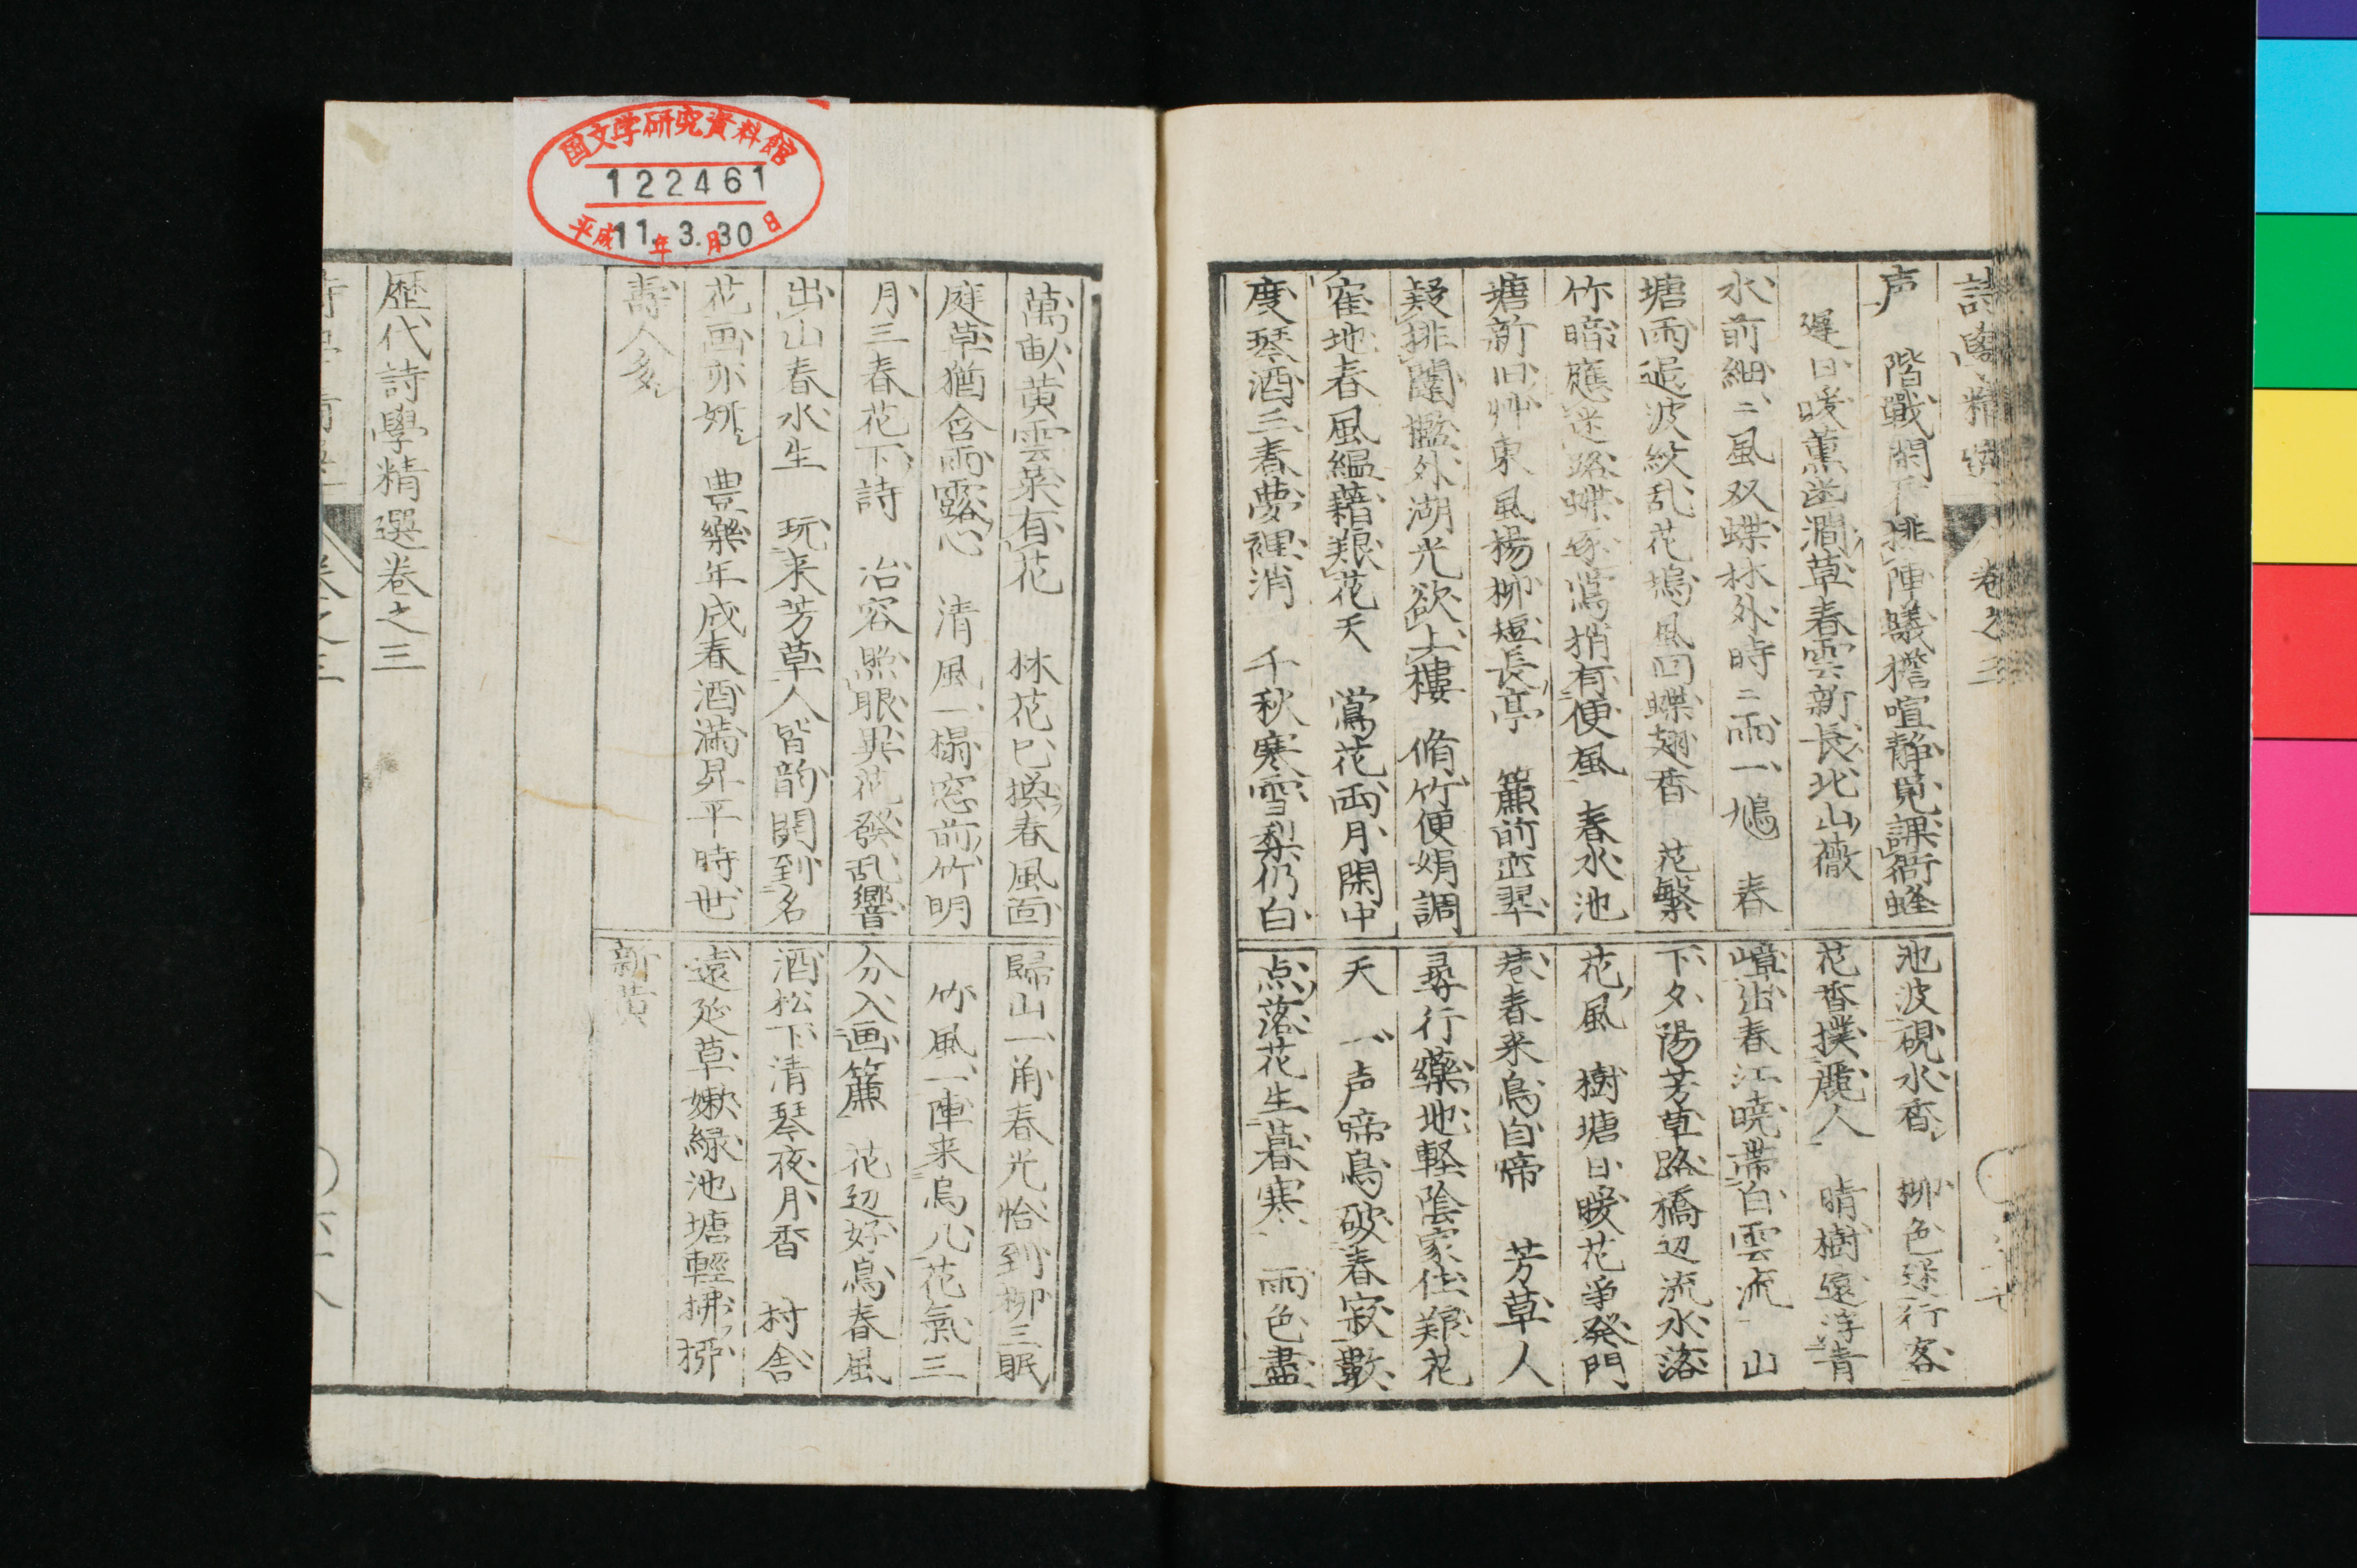 声　階戦闘不排陣蟻檐喧静覓課衙蜂
遅日暖薫幽澗草春雲新長北山薇
水前細ニ風双蝶林外時ニ雨一鳩　春
塘雨過波紋乱花塢風回蝶翅香　花繁
竹暗應迷路蝶逐鶯捎有便風　春水池
塘新旧艸東風楊柳短長亭　簾前峦翠
疑排闥檻外湖光欲上樓　脩竹便娟調
寉地春風緼藉艱花天　鶯花両月閑中
度琴酒三春夢裡消　千秋寒雪梨仍白
池波硯水香　柳色迷行客
花香撲麗人　晴樹遠浮青
嶂出春江暁帯白雲流　山
下夕陽芳草路橋辺流水落
花風　樹塘日暖花争発門
巷春来鳥自啼　芳草人
尋行藥地軽陰家住艱花
天　一声啼鳥破春寂數
点落花生暮寒　雨色盡
詩學精選　卷之三
国文学研究資料館
122461
平成11年3.月30日
萬畝黄雲菜有花　林花已換春風面
庭草猶含雨露心　清風一榻窓前竹明
月三春花下詩　冶容照眼異花發乱響
出山春水生　玩来芳草人皆韵閑到名
花画亦妍　豊樂年成春酒満昇平時世
壽人多
歸山一角春光恰到柳三眠
竹風一陣来烏几花氣三
分入画簾　花辺好鳥春風
酒松下清琴夜月香　村舎
遠延草嫩緑池塘輕拂柳
新黄
歴代詩學精選卷之三
卷之三